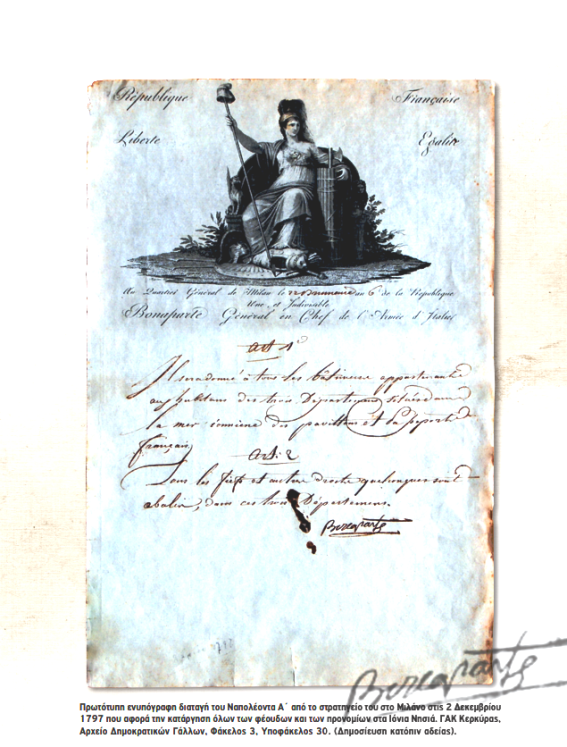 République Française
Liberté Egalité
Au Quartier Général de Milan le 22 Brumaire an 6e de la République
Une et Indivisible
Bonaparte Général en Chef de l'Armée d'Italie
art 1er
Il sera donné à tous les bâtiments appartenants
aux habitans des trois Départemens
la mer ionienne des pavillons et la
français
Art. 2
Tous les fiefs et autres droits quelconques sont
abolis, dans ces trois Départemens.
Buonaparte
Buonaparte
Πρωτότυπη ενυπόγραφη διαταγή του Ναπολέοντα Α΄ από το στρατηγείο του στο Μιλάνο στις 2 Δεκεμβρίου
1797 που αφορά την κατάργηση όλων των φέουδων και των προνομίων στα Ιόνια Νησιά. ΓΑΚ Κερκύρας,
Αρχείο Δημοκρατικών Γάλλων, Φάκελος 3, Υποφάκελος 30. (Δημοσίευση κατόπιν αδείας).